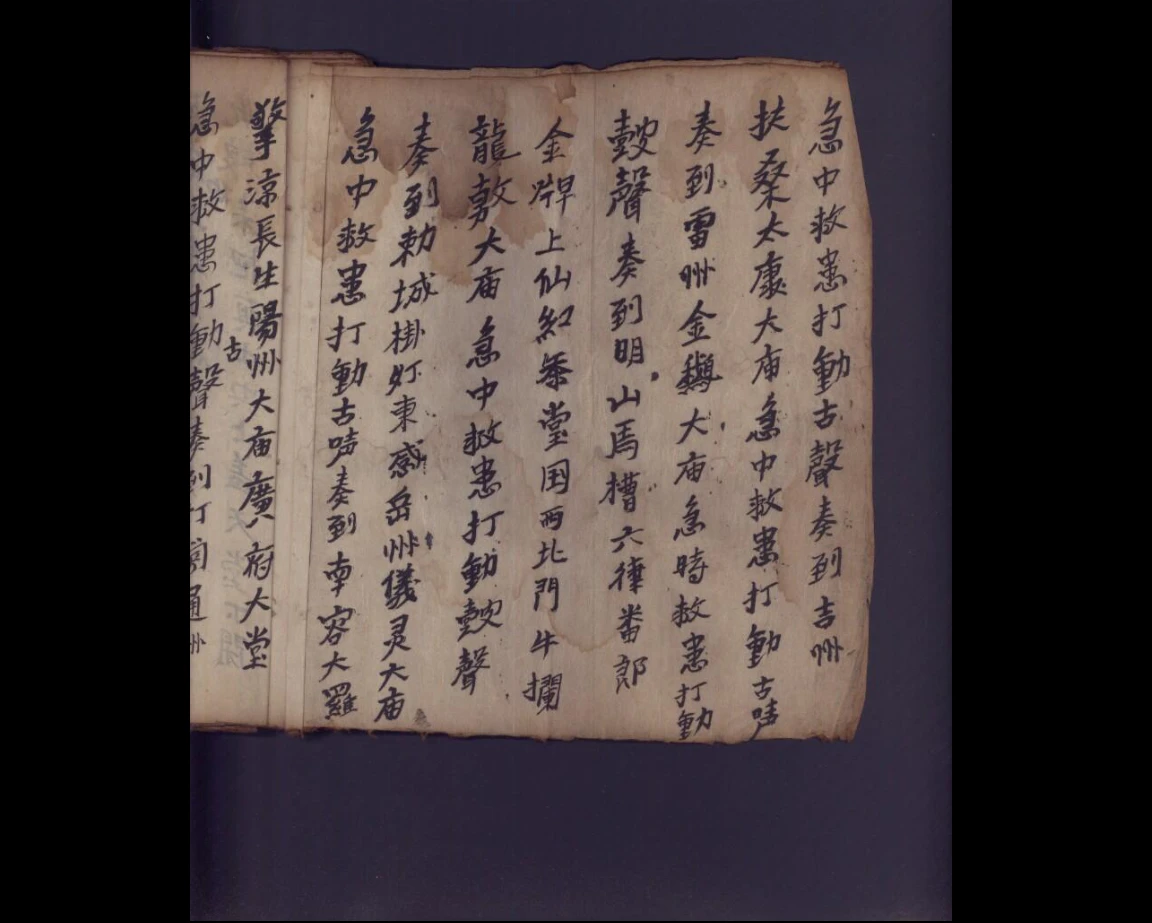 急中救患打動古聲奏到吉州
扶桑太康大庙急中救患打動古唭
奏到雷州金鵝大庙急時救患打動
鼓聲奏到明山馬槽六律番郎
金牌上仙紅案堂国西北門牛欄
龍敖大庙急中救患打動鼓聲
奏到勅城掛灯東感岳州儀灵大庙
急中救患打動古唭奏到南容大羅
擎凉長生陽州大庙廣府大堂
急中救患打動古聲奏到打洞通州